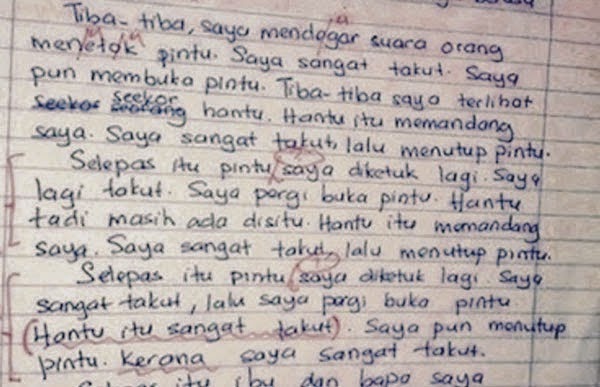 Tiba-tiba, saya mendegar suara orang
menetok pintu. Saya sangat takut. Saya
pun membuka pintu. Tiba-tiba saya terlihat
seekor seekor seorang hantu. Hantu itu memandang
saya. Saya sangat takut, lalu menutup pintu.
Selepas itu pintu saya diketuk lagi. Saya
lagi takut. Saya pergi buka pintu. Hantu
tadi masih ada disitu. Hantu itu memandang
saya. Saya sangat takut, lalu menutup pintu.
Selepas itu pintu saya diketuk lagi. Saya
sangat takut, lalu saya pergi buka pintu
(Hantu itu sangat takut). Saya pun menutup
pintu. Kerana saya sangat takut.
itu ibu dan bapa saya